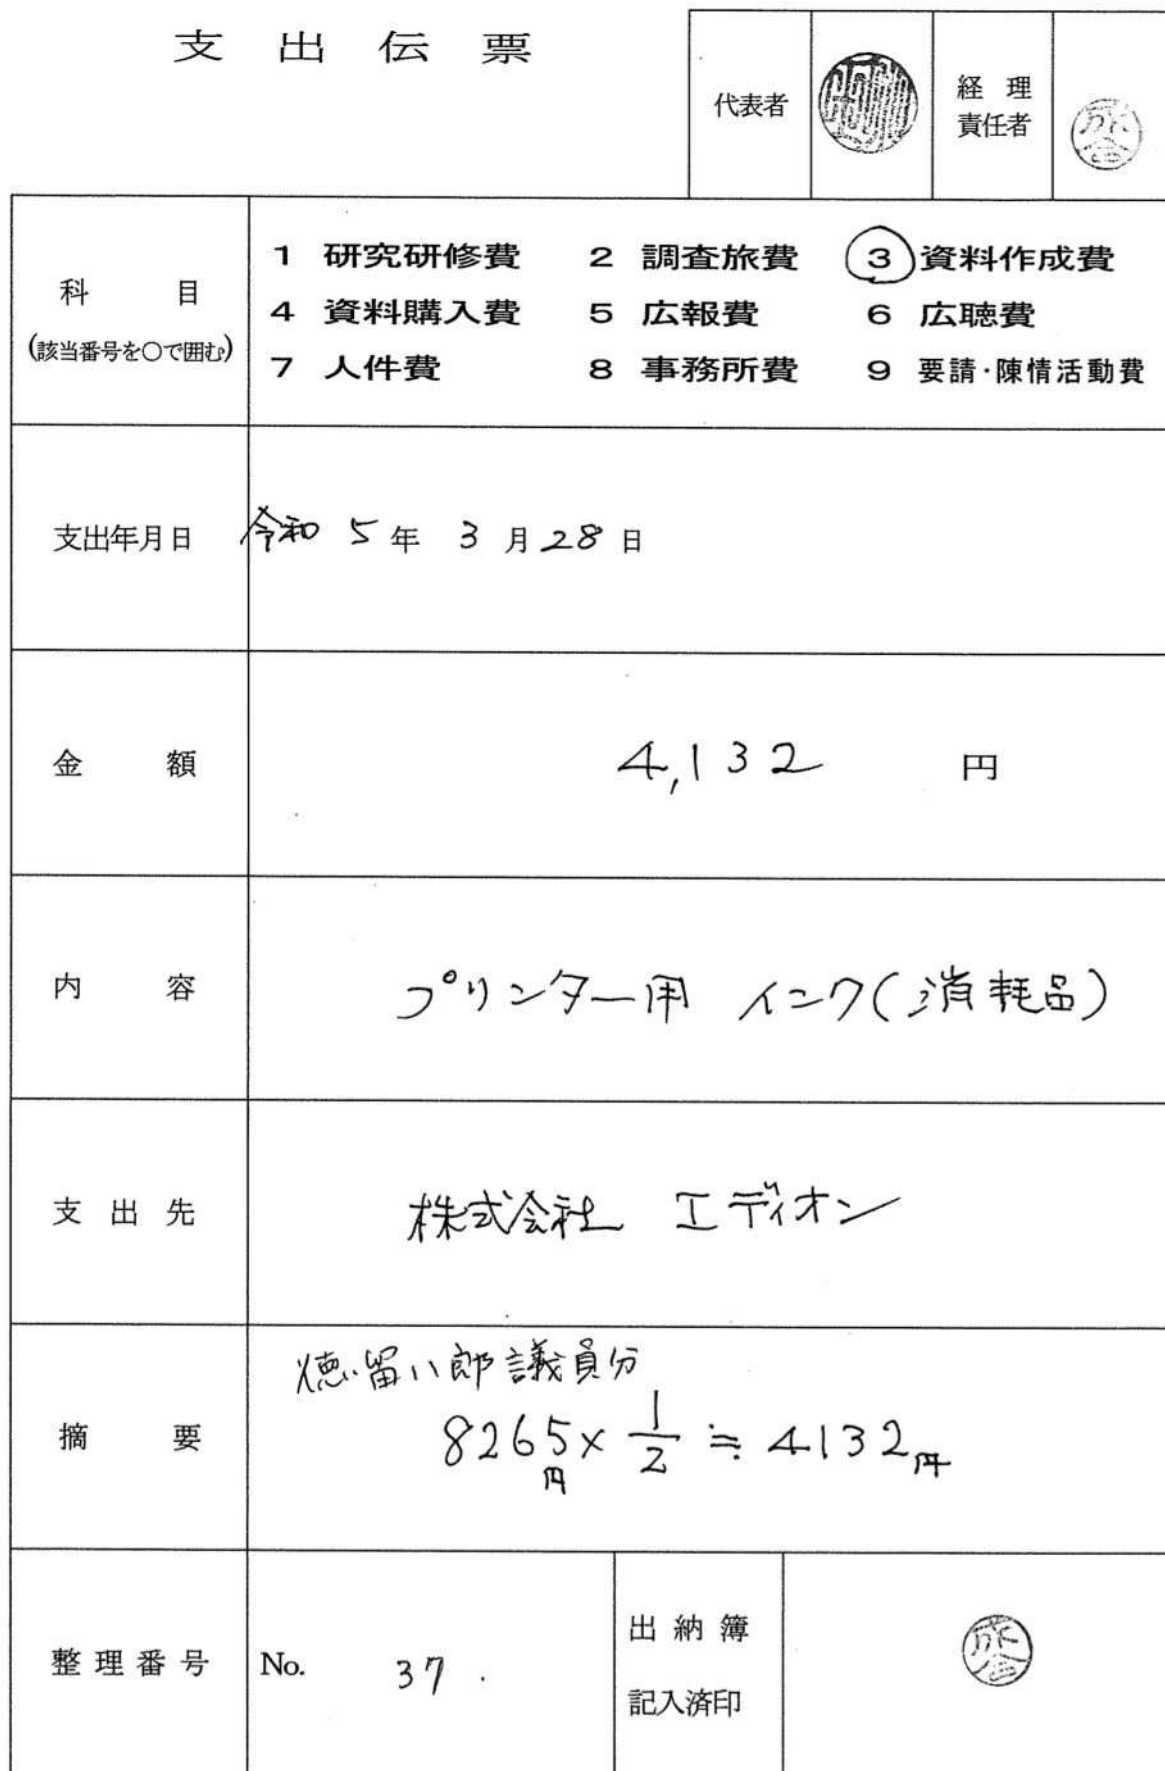 支出伝票
代表者
経理
責任者
科目
(該当番号を○で囲む)
1 研究研修費 2 調査旅費 3 資料作成費
4 資料購入費 5 広報費 6 広聴費
7 人件費 8 事務所費 9 要請・陳情活動費
支出年月日 令和 5 年 3 月 28 日
金額 4,132 円
内容 プリンター用 インク(消耗品)
支出先 株式会社 エディオン
摘要
徳留八郎議員分
8265円 × 1/2 ≒ 4132円
整理番号 No. 37.
出納簿
記入済印